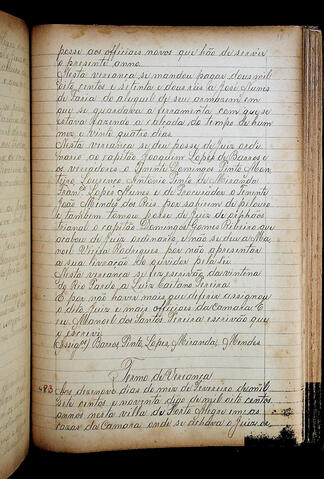 posse aos officiais novos que hão de servir
o presente anno.
Nesta veriança se mandou pagar dous mil
oito centos e setenta e dous reis a José Nunes
de Faria do aluguel de seu armazem em
que se guardava a ferramenta com que se
estava fazendo a calçada do tempo de hum
mez e vinte quatro dias.
Nesta veriança se deu posse de Juiz ordi
nario ao capitão Joaquim Lopes de Barros e
os vereadores o Tenente Domingos Pinto Mon
Lourenço Antonio Pinto de Miranda
Franco Lopes Nunes e de Procurador o Tenente
João Mendes dos Reis por sahirem de pelouro
e tambem tomou posse de Juiz de orphãos
trianal o capitão Domingos Gomes Ribeiro que
acabou de Juiz ordinario, e não se deu a Ma
noel Vieira Rodrigues, por não apresentar
a sua
Nesta veriança se fez escrivão da vintena
do Rio Pardo a Luiz Caetano Pereira
E por não haver mais que deferir assignou
o dito Juiz e mais officiais da Camara. E
eu Manoel dos Santos Pereira escrivão que
o escrevi
(Assigos) Barros, Pinto, Lopes, Miranda, Mendes
Termo de Veriança
483 Aos dezenove dias do mez de Fevereiro de mil
sete centos e noventa digo de mil oito centos
annos nesta villa de Porto Alegre em as
cazas da Camara onde se achava o Juiz or